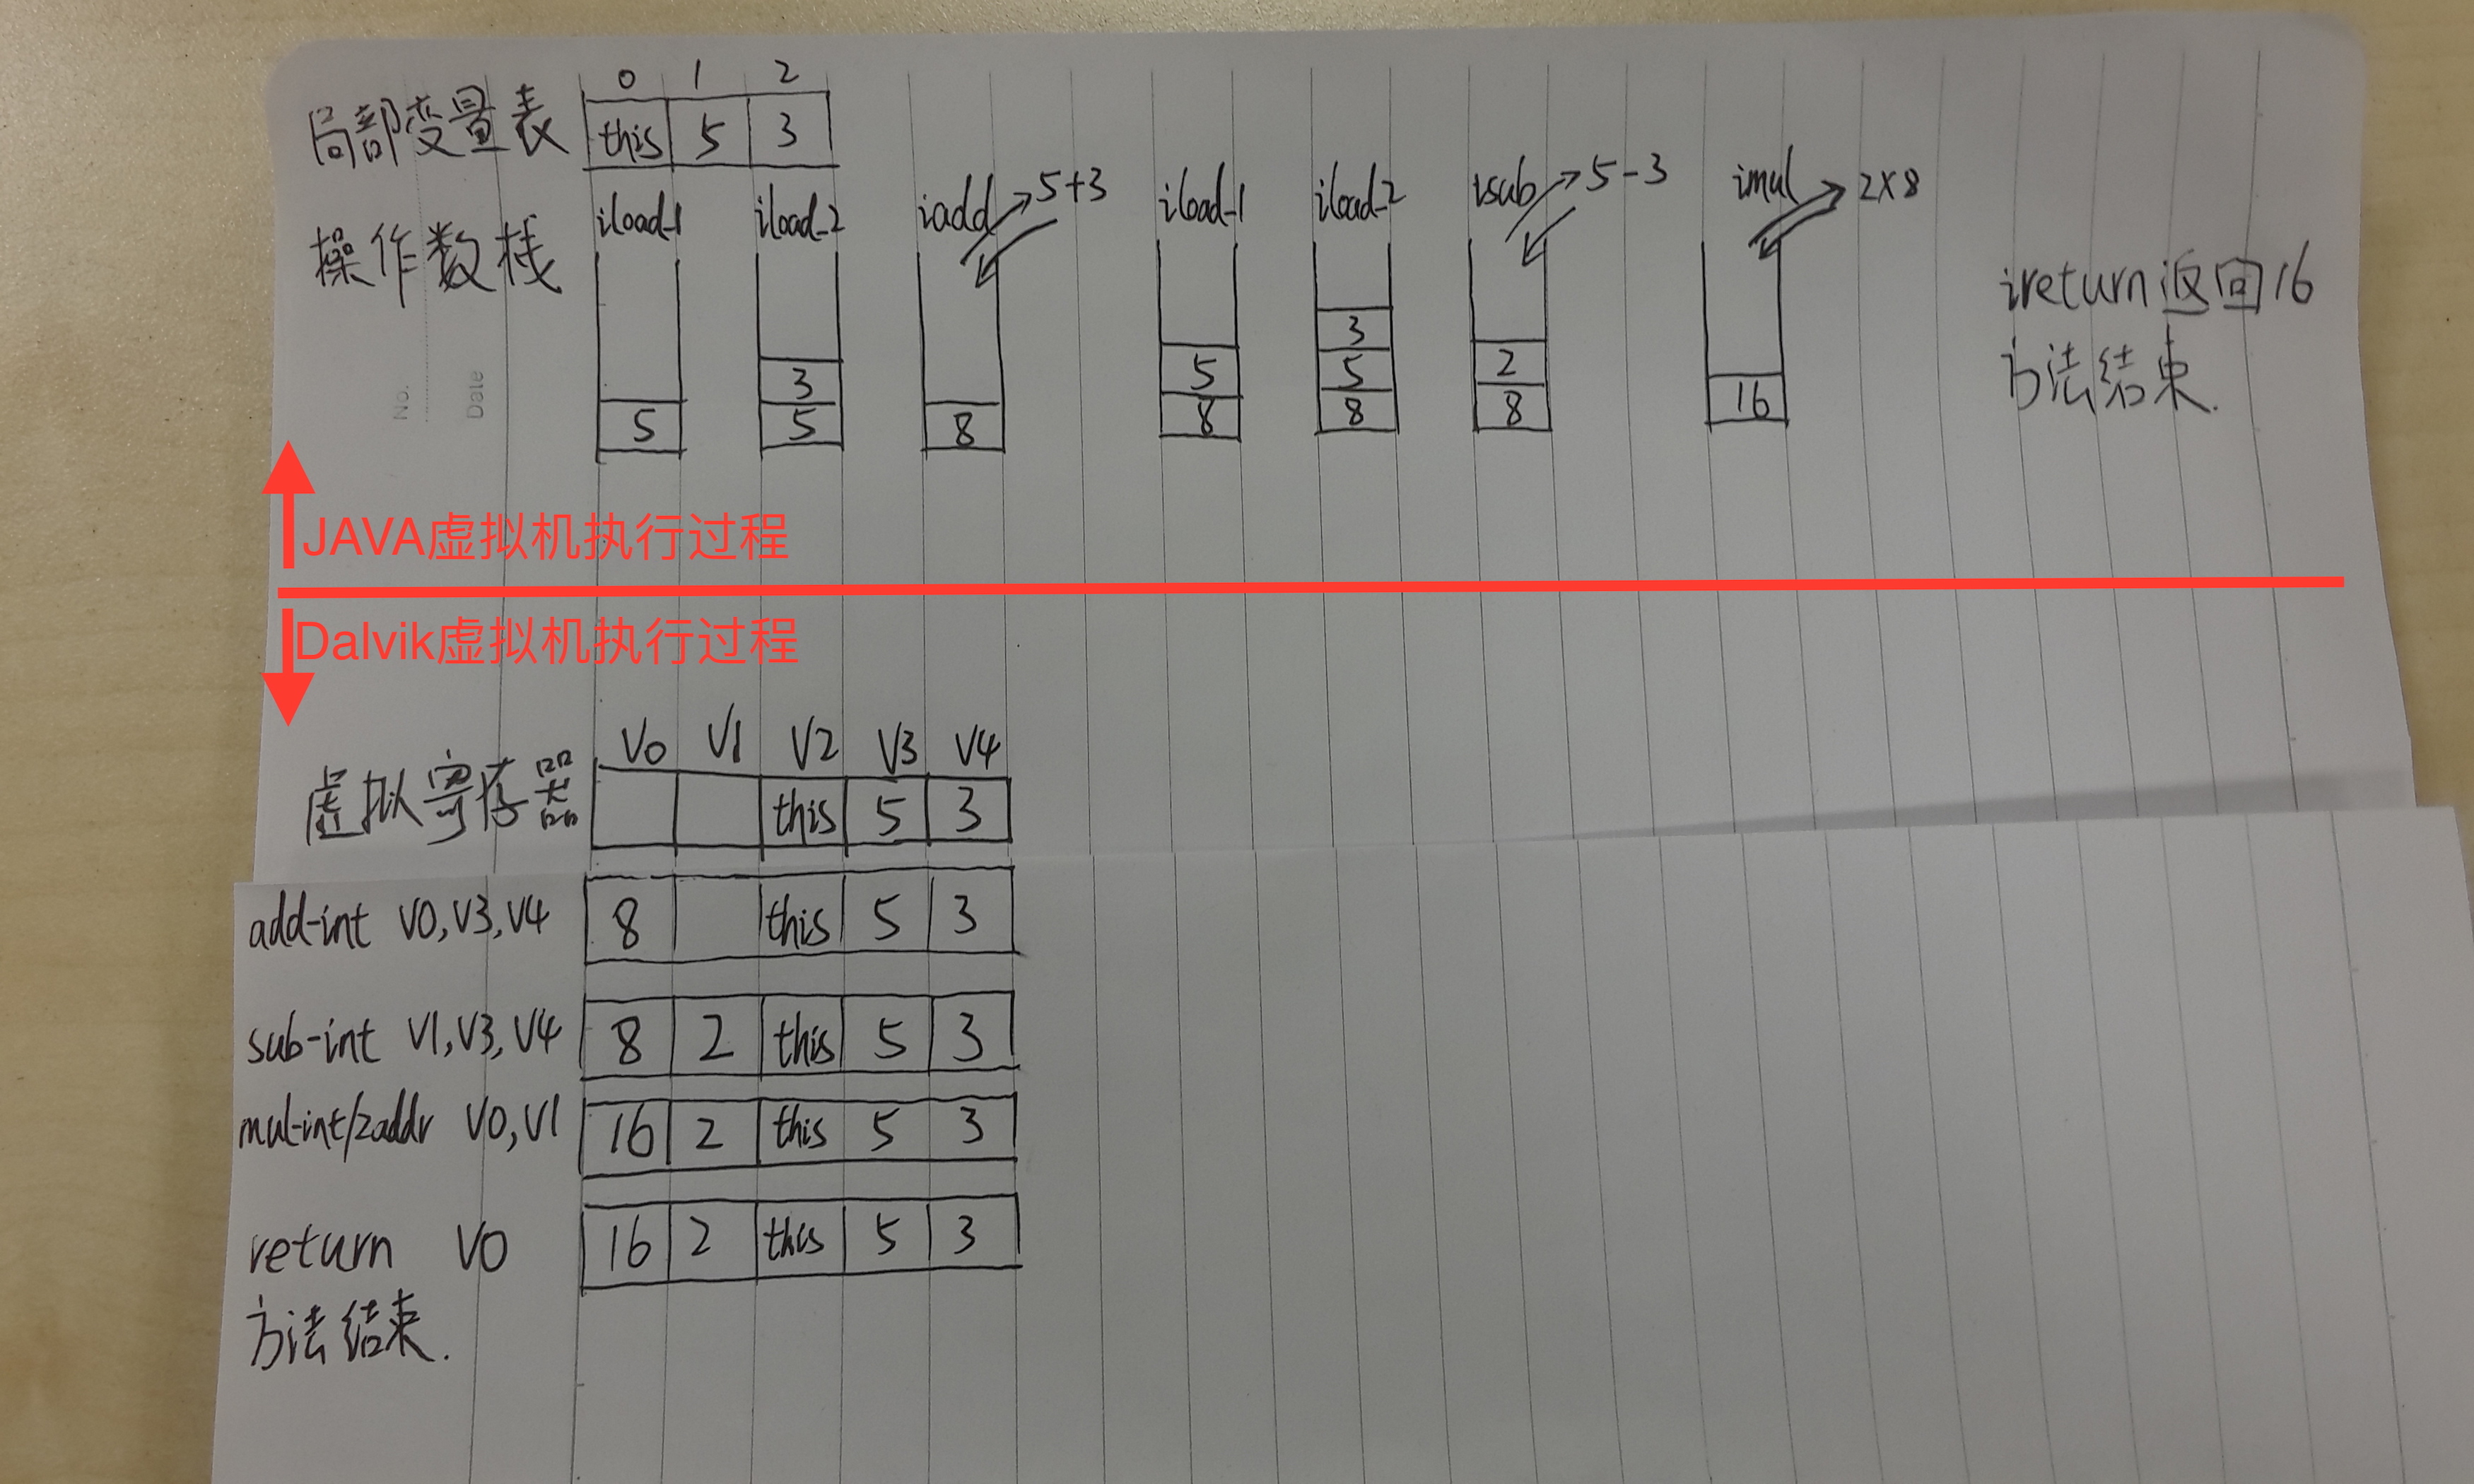 0 1 2
局部变量表 this 5 3
操作数栈 iload_1 iload_2 iadd 5+3 iload_1 iload_2 isub 5-3 imul 2×8
5
3
5
8
5
8
3
5
8
2
8
16
ireturn返回16
方法结束.
No.
Date
JAVA虚拟机执行过程
Dalvik虚拟机执行过程
V0 V1 V2 V3 V4
虚拟寄存器 this 5 3
add-int V0,V3,V4 8 this 5 3
sub-int V1,V3,V4 8 2 this 5 3
mul-int/2addr V0,V1 16 2 this 5 3
return V0 16 2 this 5 3
方法结束.